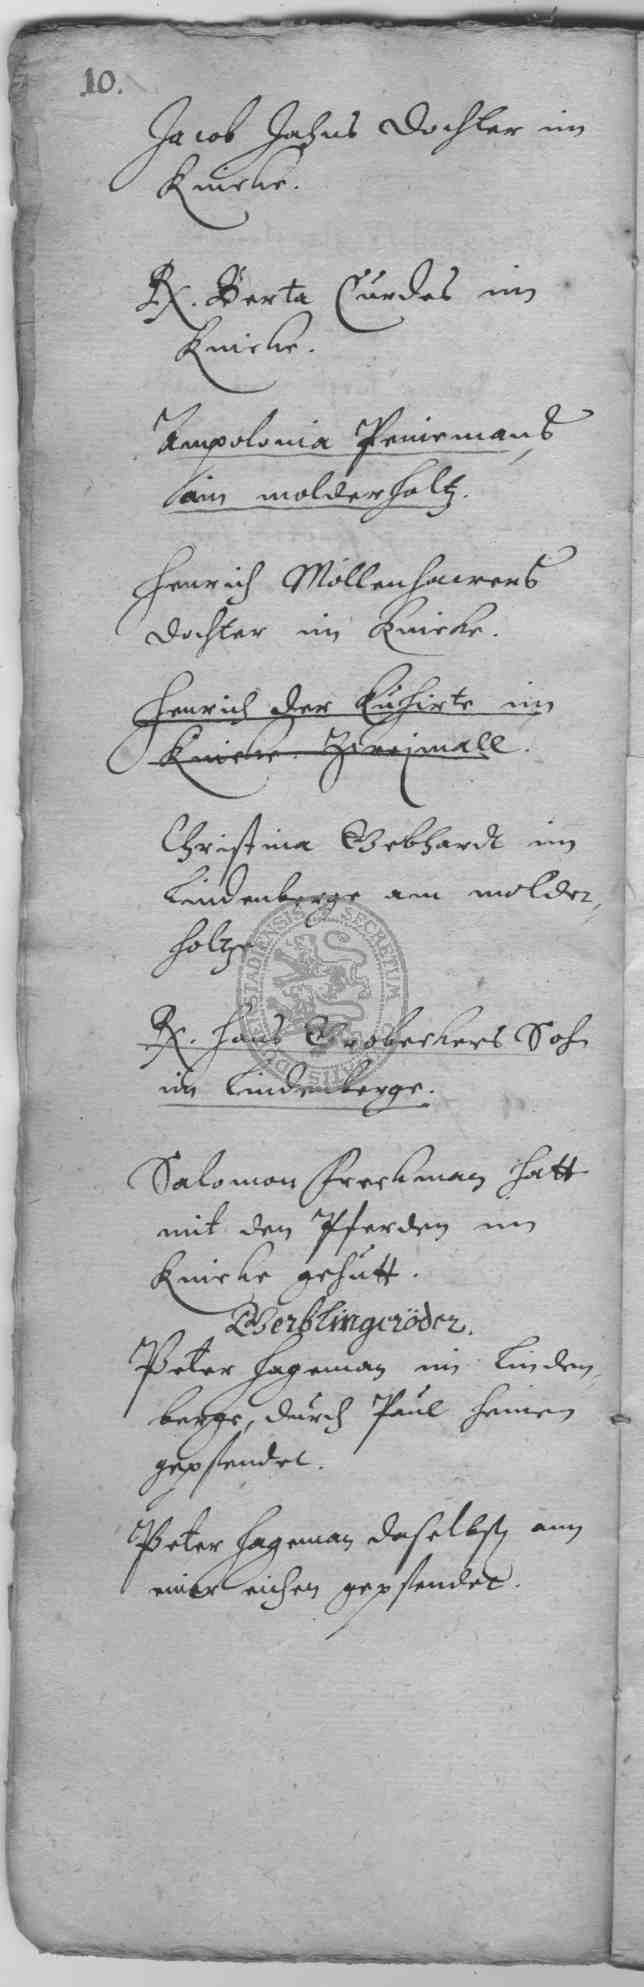 10.
Jacob Jahns Dochter im
Knicke.
Rx. Berta Curdes im
Knicke.
Ampolonia Peinemans
am molderholtz.
Henrich Möllenhawers
Dochter im Knicke.
Henrich der Kuhirte im
Knicke. Zweymall.
Christina Gebhardt im
Lindenberge am molder,
holtze
Rx. Hans Grobeckers Sohn
im Lindenberge.
Salomon Freckman hatt
mit den Pferden im
Knicke gehütt.
Werblingeröder.
Peter Hageman im Linden,
berge, durch Paul Heinen
gepfendet.
Peter Hageman daselbst ann
einer eichen gepfendet.
SECRETUM